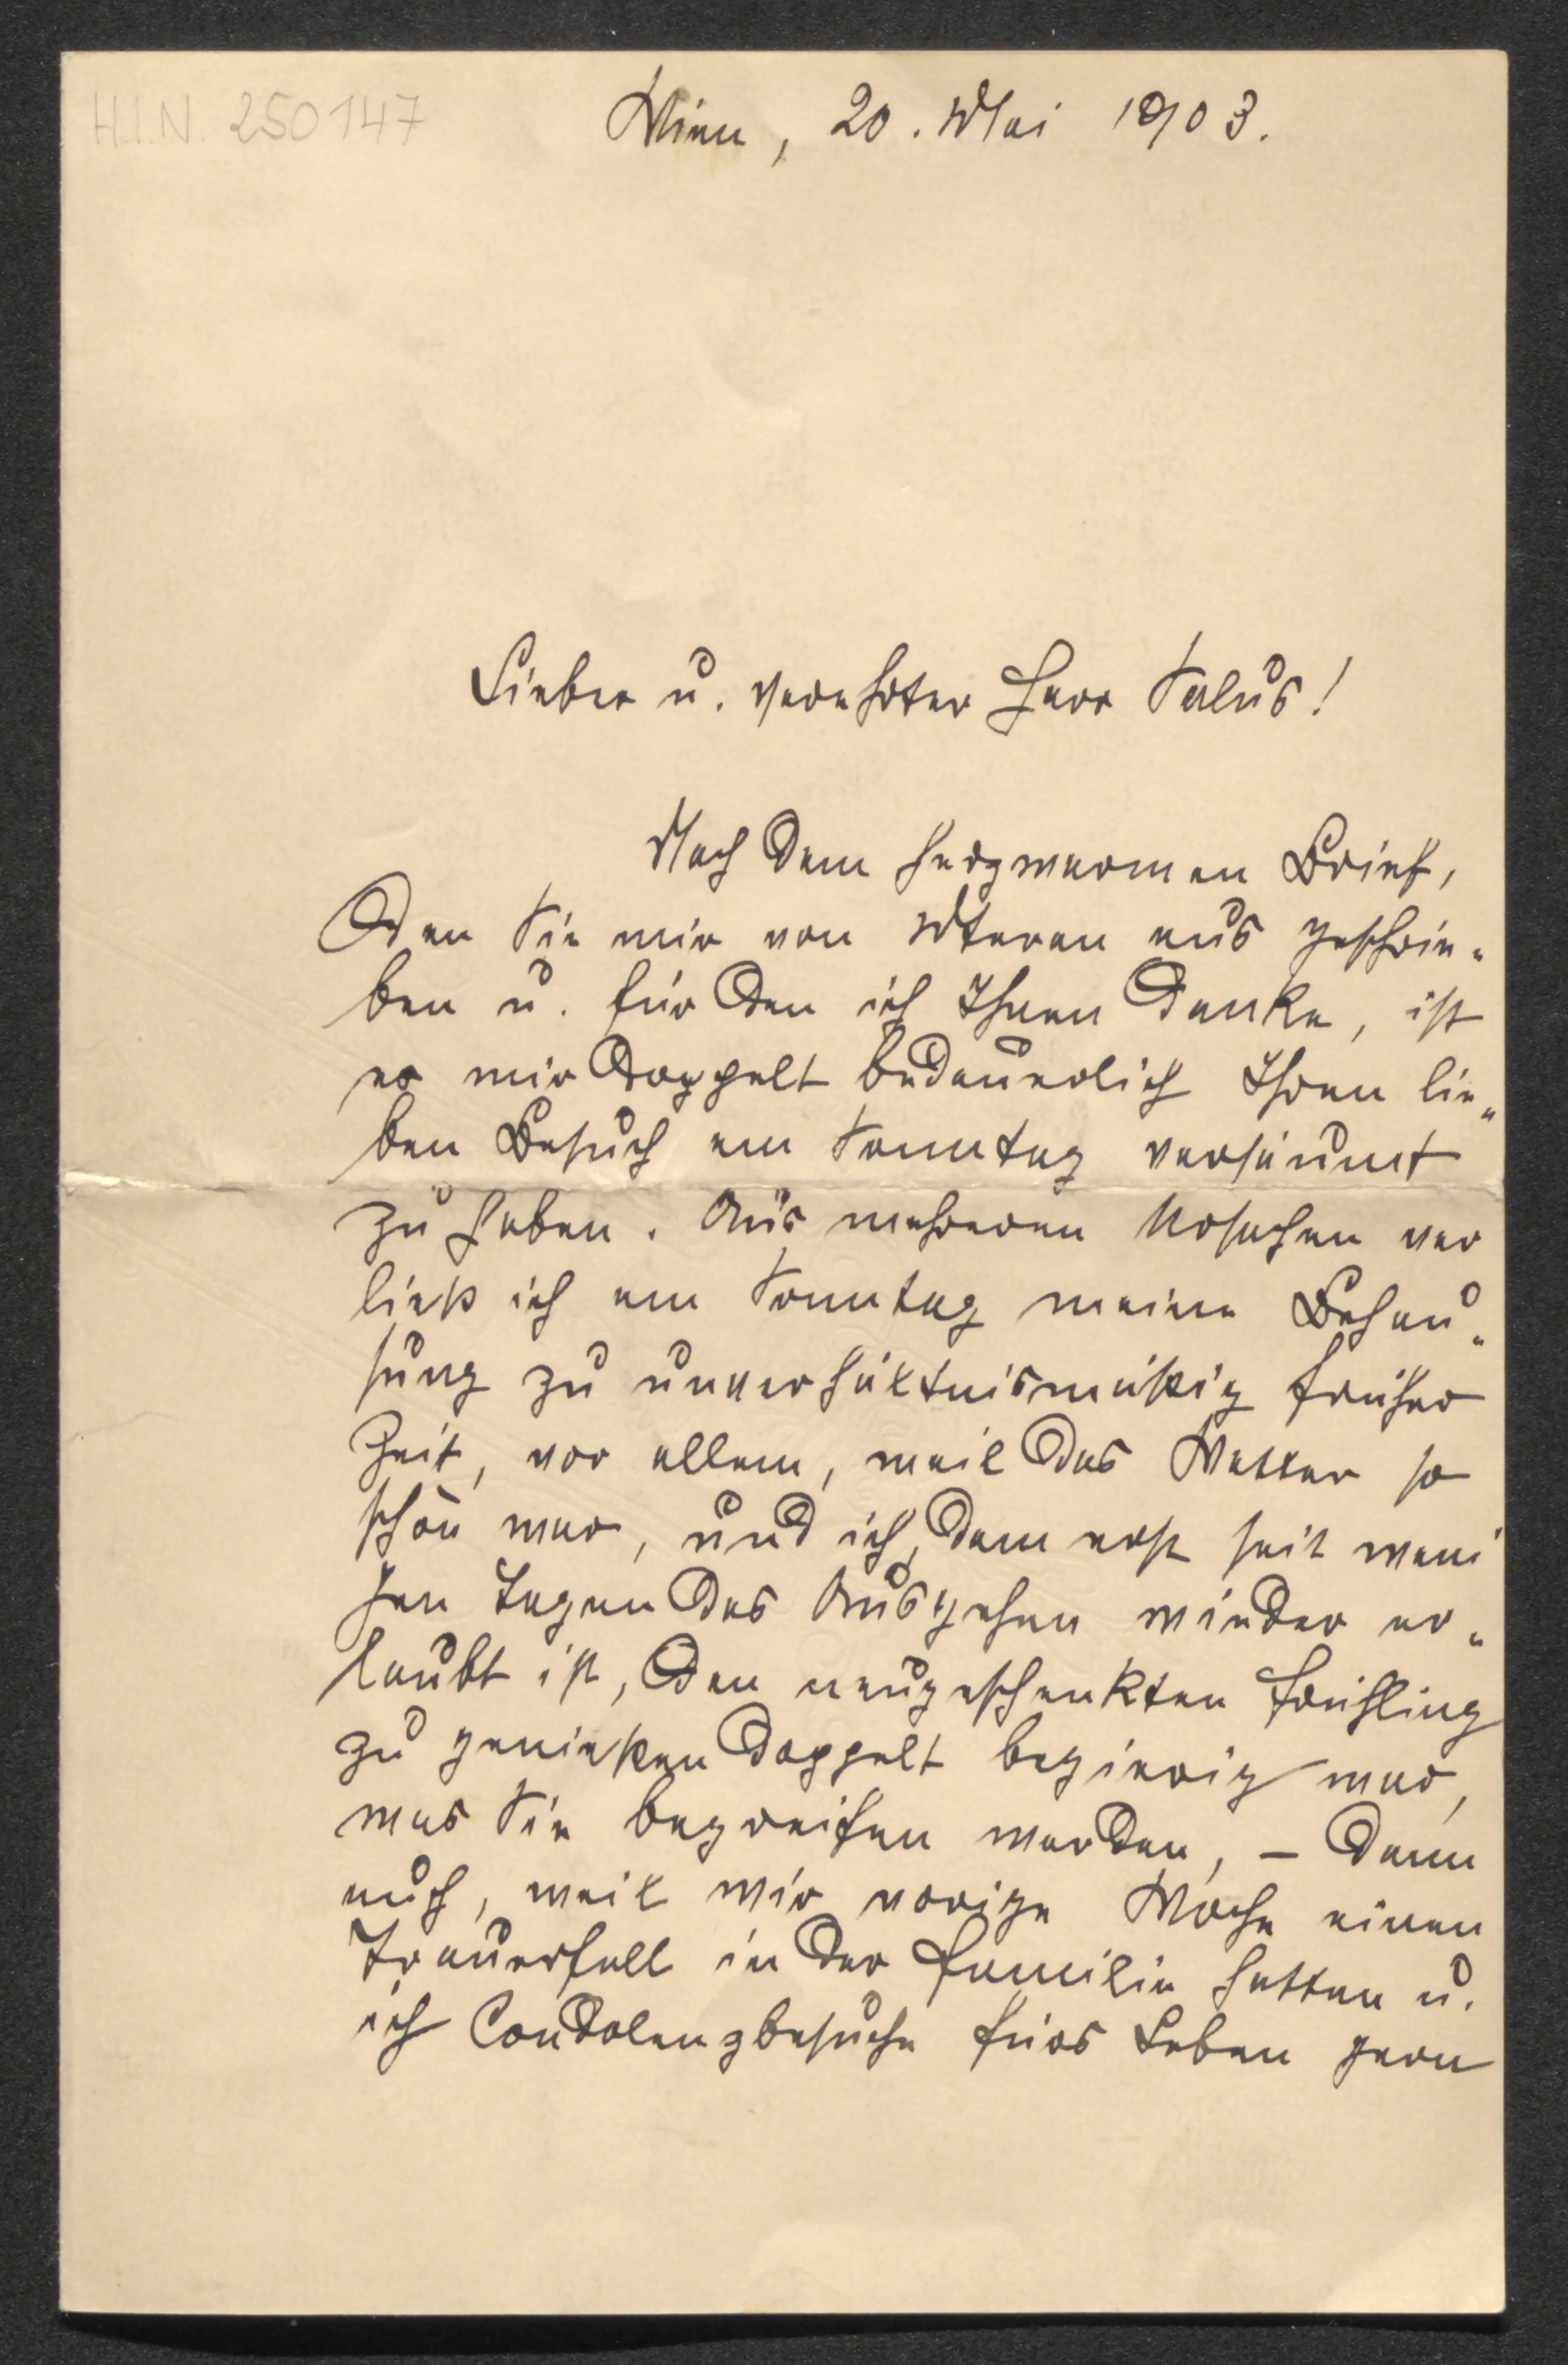 H.I.N. 250147
Wien, 20. Mai 1903.
Lieber u. verehrter Herr Salus!
Nach dem herzwarmen Brief,
den Sie mir von Meran aus geschrie-
ben u. für den ich Ihnen danke, ist
es mir doppelt bedauerlich Ihren lie-
ben Besuch am Sonntag versäumt
zu haben. Aus mehreren Ursachen ver
ließ ich am Sonntag meine Behau-
sung zu unverhältnismäßig früher
Zeit, vor allem, weil das Wetter so
schön war, und ich, dem erst seit weni
gen Tagen das Ausgehen wieder er-
laubt ist, den neugeschenkten Frühling
zu genießen doppelt begierig war,
was Sie begreifen werden, – dann
auch, weil wir vorige Woche einen
Trauerfall in der Familie hatten u.
ich Condolenzbesuche fürs Leben gern